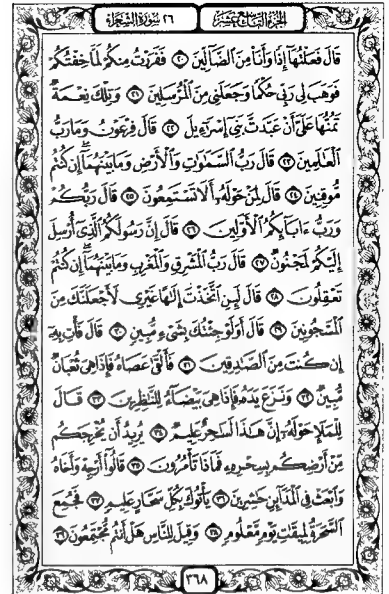 الجزء التاسع عشر ٢٦ سورة الشعراء
قَالَ فَعَلْتُهَآ إِذًا وَأَنَا۠ مِنَ ٱلضَّآلِّينَ ٢٠ فَفَرَرْتُ مِنكُمْ لَمَّا خِفْتُكُمْ
فَوَهَبَ لِى رَبِّى حُكْمًا وَجَعَلَنِى مِنَ ٱلْمُرْسَلِينَ ٢١ وَتِلْكَ نِعْمَةٌ
تَمُنُّهَا عَلَىَّ أَنْ عَبَّدتَّ بَنِىٓ إِسْرَٰٓءِيلَ ٢٢ قَالَ فِرْعَوْنُ وَمَا رَبُّ
ٱلْعَٰلَمِينَ ٢٣ قَالَ رَبُّ ٱلسَّمَٰوَٰتِ وَٱلْأَرْضِ وَمَا بَيْنَهُمَآ إِن كُنتُم
مُّوقِنِينَ ٢٤ قَالَ لِمَنْ حَوْلَهُۥٓ أَلَا تَسْتَمِعُونَ ٢٥ قَالَ رَبُّكُمْ
وَرَبُّ ءَابَآئِكُمُ ٱلْأَوَّلِينَ ٢٦ قَالَ إِنَّ رَسُولَكُمُ ٱلَّذِىٓ أُرْسِلَ
إِلَيْكُمْ لَمَجْنُونٌ ٢٧ قَالَ رَبُّ ٱلْمَشْرِقِ وَٱلْمَغْرِبِ وَمَا بَيْنَهُمَآ إِن كُنتُمْ
تَعْقِلُونَ ٢٨ قَالَ لَئِنِ ٱتَّخَذْتَ إِلَٰهًا غَيْرِى لَأَجْعَلَنَّكَ مِنَ
ٱلْمَسْجُونِينَ ٢٩ قَالَ أَوَلَوْ جِئْتُكَ بِشَىْءٍ مُّبِينٍ ٣٠ قَالَ فَأْتِ بِهِۦٓ
إِن كُنتَ مِنَ ٱلصَّٰدِقِينَ ٣١ فَأَلْقَىٰ عَصَاهُ فَإِذَا هِىَ ثُعْبَانٌ
مُّبِينٌ ٣٢ وَنَزَعَ يَدَهُۥ فَإِذَا هِىَ بَيْضَآءُ لِلنَّٰظِرِينَ ٣٣ قَالَ
لِلْمَلَإِ حَوْلَهُۥٓ إِنَّ هَٰذَا لَسَٰحِرٌ عَلِيمٌ ٣٤ يُرِيدُ أَن يُخْرِجَكُم
مِّنْ أَرْضِكُم بِسِحْرِهِۦ فَمَاذَا تَأْمُرُونَ ٣٥ قَالُوٓا۟ أَرْجِهْ وَأَخَاهُ
وَٱبْعَثْ فِى ٱلْمَدَآئِنِ حَٰشِرِينَ ٣٦ يَأْتُوكَ بِكُلِّ سَحَّارٍ عَلِيمٍ ٣٧ فَجُمِعَ
ٱلسَّحَرَةُ لِمِيقَٰتِ يَوْمٍ مَّعْلُومٍ ٣٨ وَقِيلَ لِلنَّاسِ هَلْ أَنتُم مُّجْتَمِعُونَ ٣٩
٣٦٨